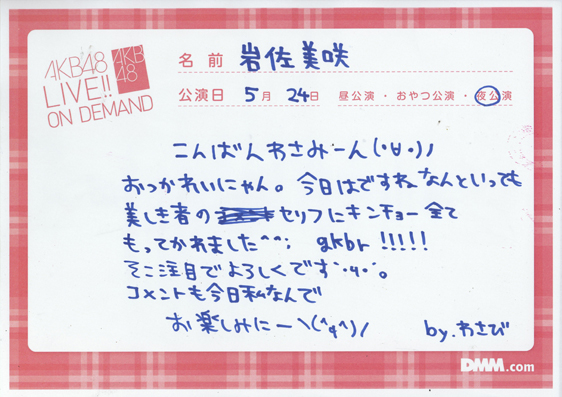 AKB48
LIVE!!
ON DEMAND
AKB
48
名 前 岩佐美咲
公演日 5月 24日 昼公演・おやつ公演・夜公演
こんばんわさみーん(・∀・)ノ
おっかれいにゃん。今日はですね、なんといっても
美しき者の セリフにキンチョー全て
もってかれました^^; gkbr !!!!!
そこ注目でよろしくです
コメントも今日私なんで
お楽しみにー\(^q^)/
by.わさび
DMM.com